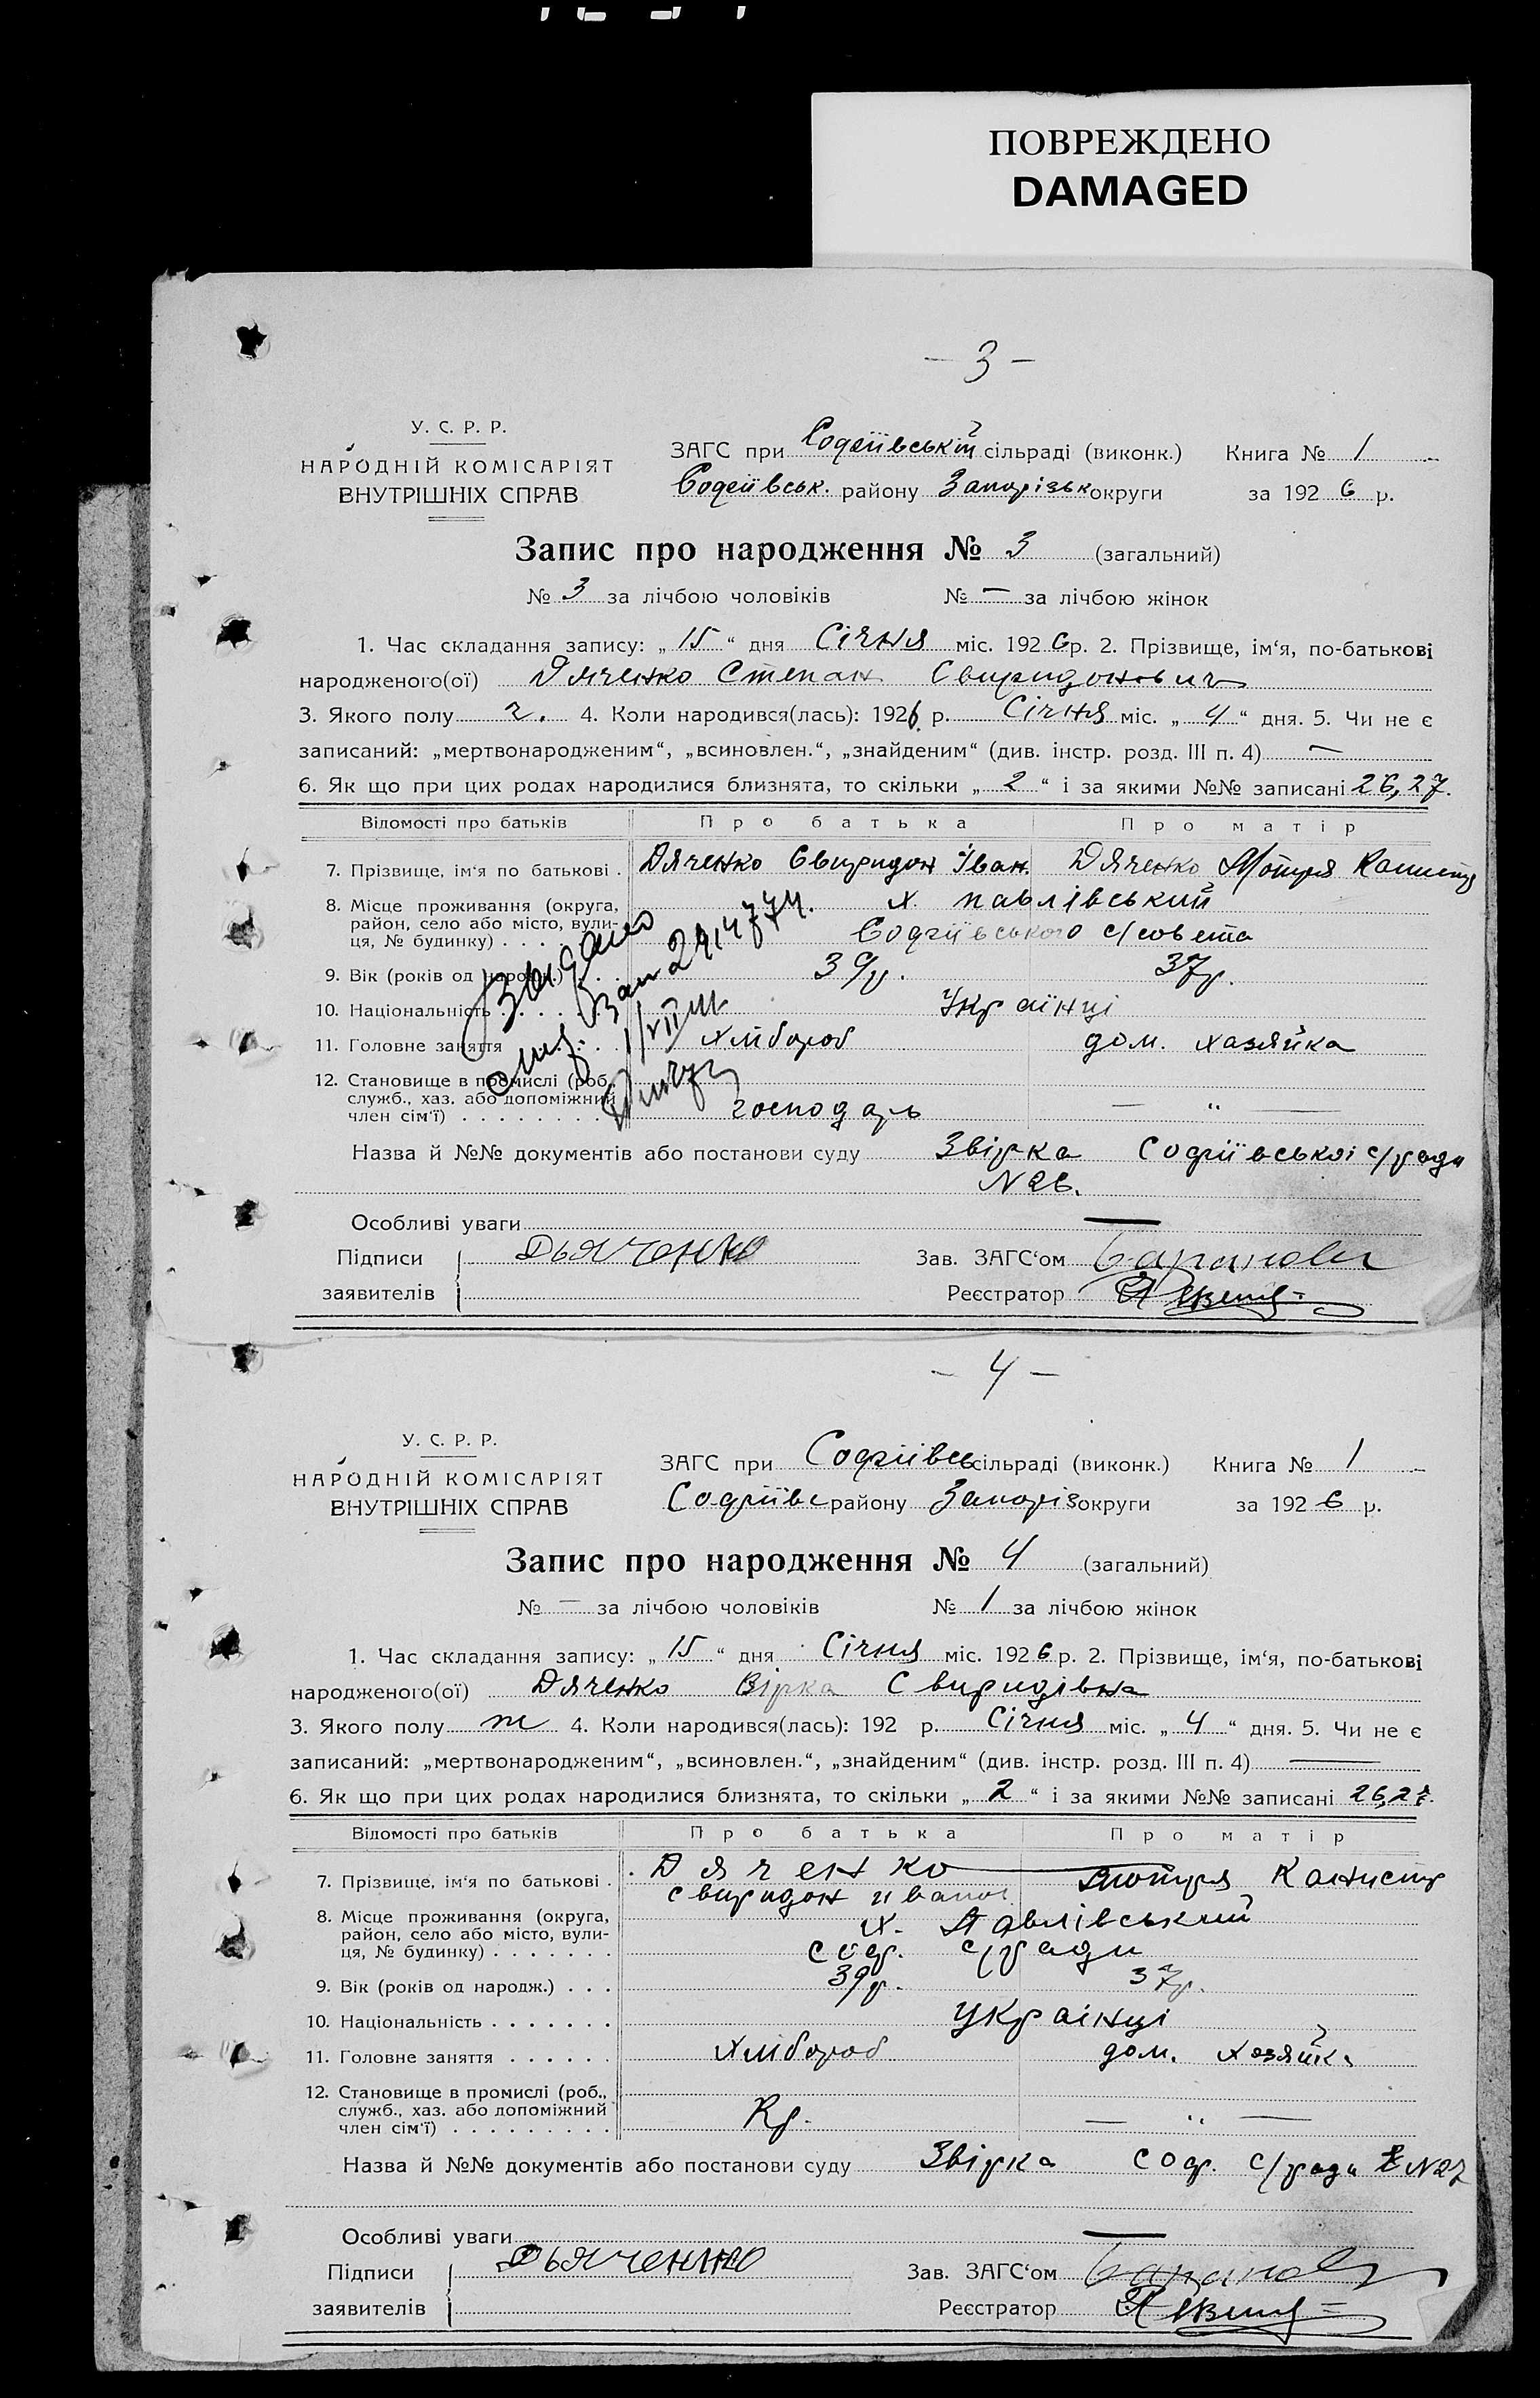 ПОВРЕЖДЕНО
DAMAGED
— 3 —
У. С. Р. Р.
НАРОДНІЙ КОМІСАРІЯТ
ВНУТРІШНІХ СПРАВ
ЗАГС при Софіївській сільраді (виконк.) Книга № 1
Софіївськ. району Запорізьк округи за 1926 р.
Запис про народження № 3 (загальний)
№ 3 за лічбою чоловіків № — за лічбою жінок
1. Час складання запису: „ 15 “ дня Січня міс. 1926 р. 2. Прізвище, ім‘я, по-батькові
народженого(ої) Дяченко Степан Свиридонович
3. Якого полу ч. 4. Коли народився(лась): 1926 р. Січня міс. „ 4 “ дня. 5. Чи не є
записаний: „мертвонародженим“, „всиновлен.“, „знайденим“ (див. інстр. розд. III п. 4) —
6. Як що при цих родах народилися близнята, то скільки „ 2 “ і за якими №№ записані 26, 27.
Відомості про батьків Про батька Про матір
7. Прізвище, ім‘я по батькові . Дяченко Свиридон Іван. Дяченко Мотря
8. Місце проживання (округа, х. павлівський
район, село або місто, вули-
ця, № будинку) . . . Софіївського с/совета
9. Вік (років од народж.) 39 р. 37 р.
10. Національність . . . . Українці
11. Головне заняття Хлібороб дом. хазяйка
12. Становище в промислі (роб.,
служб., хаз. або допоміжний
член сім‘ї) . . . . . . . . господарь — “ —
Назва й №№ документів або постанови суду Звірка Софіївської с/ради
N 26.
Особливі уваги —
Підписи Дьяченко Зав. ЗАГС‘ом
заявителів Реєстратор
— 4 —
У. С. Р. Р.
НАРОДНІЙ КОМІСАРІЯТ
ВНУТРІШНІХ СПРАВ
ЗАГС при Софіївсь сільраді (виконк.) Книга № 1
Софіївс району Запоріз округи за 1926 р.
Запис про народження № 4 (загальний)
№ — за лічбою чоловіків № 1 за лічбою жінок
1. Час складання запису: „ 15 “ дня Січня міс. 1926 р. 2. Прізвище, ім‘я, по-батькові
народженого(ої) Дяченко Вірка Свиридівна
3. Якого полу ж 4. Коли народився(лась): 192 р. Січня міс. „ 4 “ дня. 5. Чи не є
записаний: „мертвонародженим“, „всиновлен.“, „знайденим“ (див. інстр. розд. III п. 4) —
6. Як що при цих родах народилися близнята, то скільки „ 2 “ і за якими №№ записані 26, 27.
Відомості про батьків Про батька Про матір
7. Прізвище, ім‘я по батькові . Дяченко — Мотря
свиридон
8. Місце проживання (округа, х. Павлівський
район, село або місто, вули-
ця, № будинку) . . . . . . . соф. с/ради
9. Вік (років од народж.) . . . 39 р. 37 р.
10. Національність . . . . . . . Українці
11. Головне заняття . . . . . . Хлібороб дом. хозяйк
12. Становище в промислі (роб.,
служб., хаз. або допоміжний
член сім‘ї) . . . . . . . . . — “ —
Назва й №№ документів або постанови суду Звірка Соф. с/ради N 27
Особливі уваги —
Підписи Дьяченко Зав. ЗАГС‘ом
заявителів Реєстратор